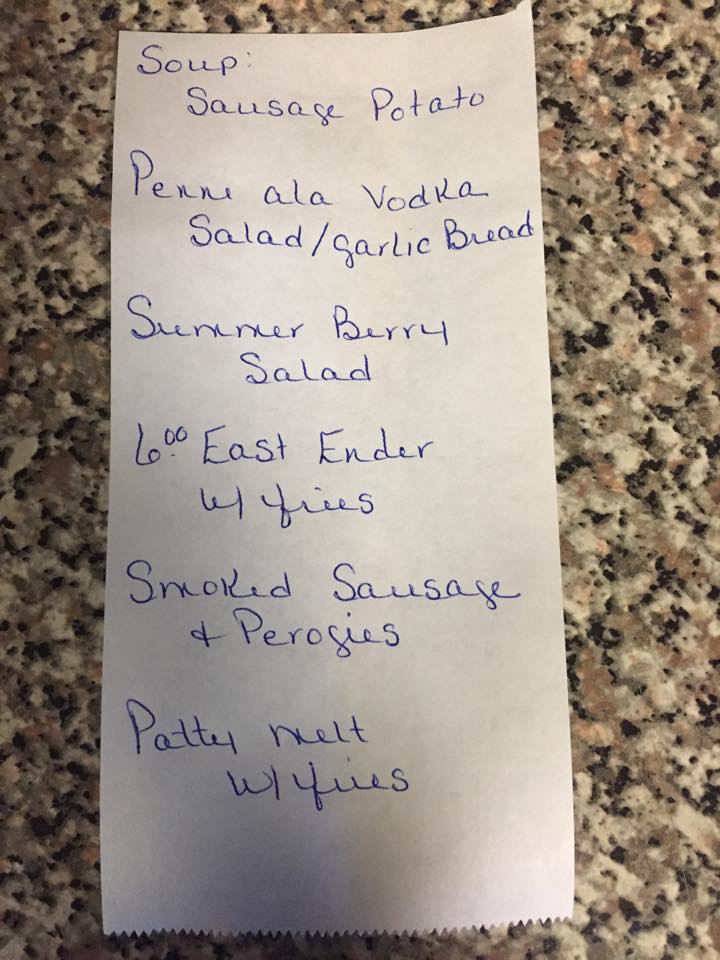 Soup:
Sausage Potato
Penne ala Vodka
Salad/garlic Bread
Summer Berry
Salad
6.00 East Ender
w/ fries
Smoked Sausage
+ Perogies
Patty melt
w/ fries